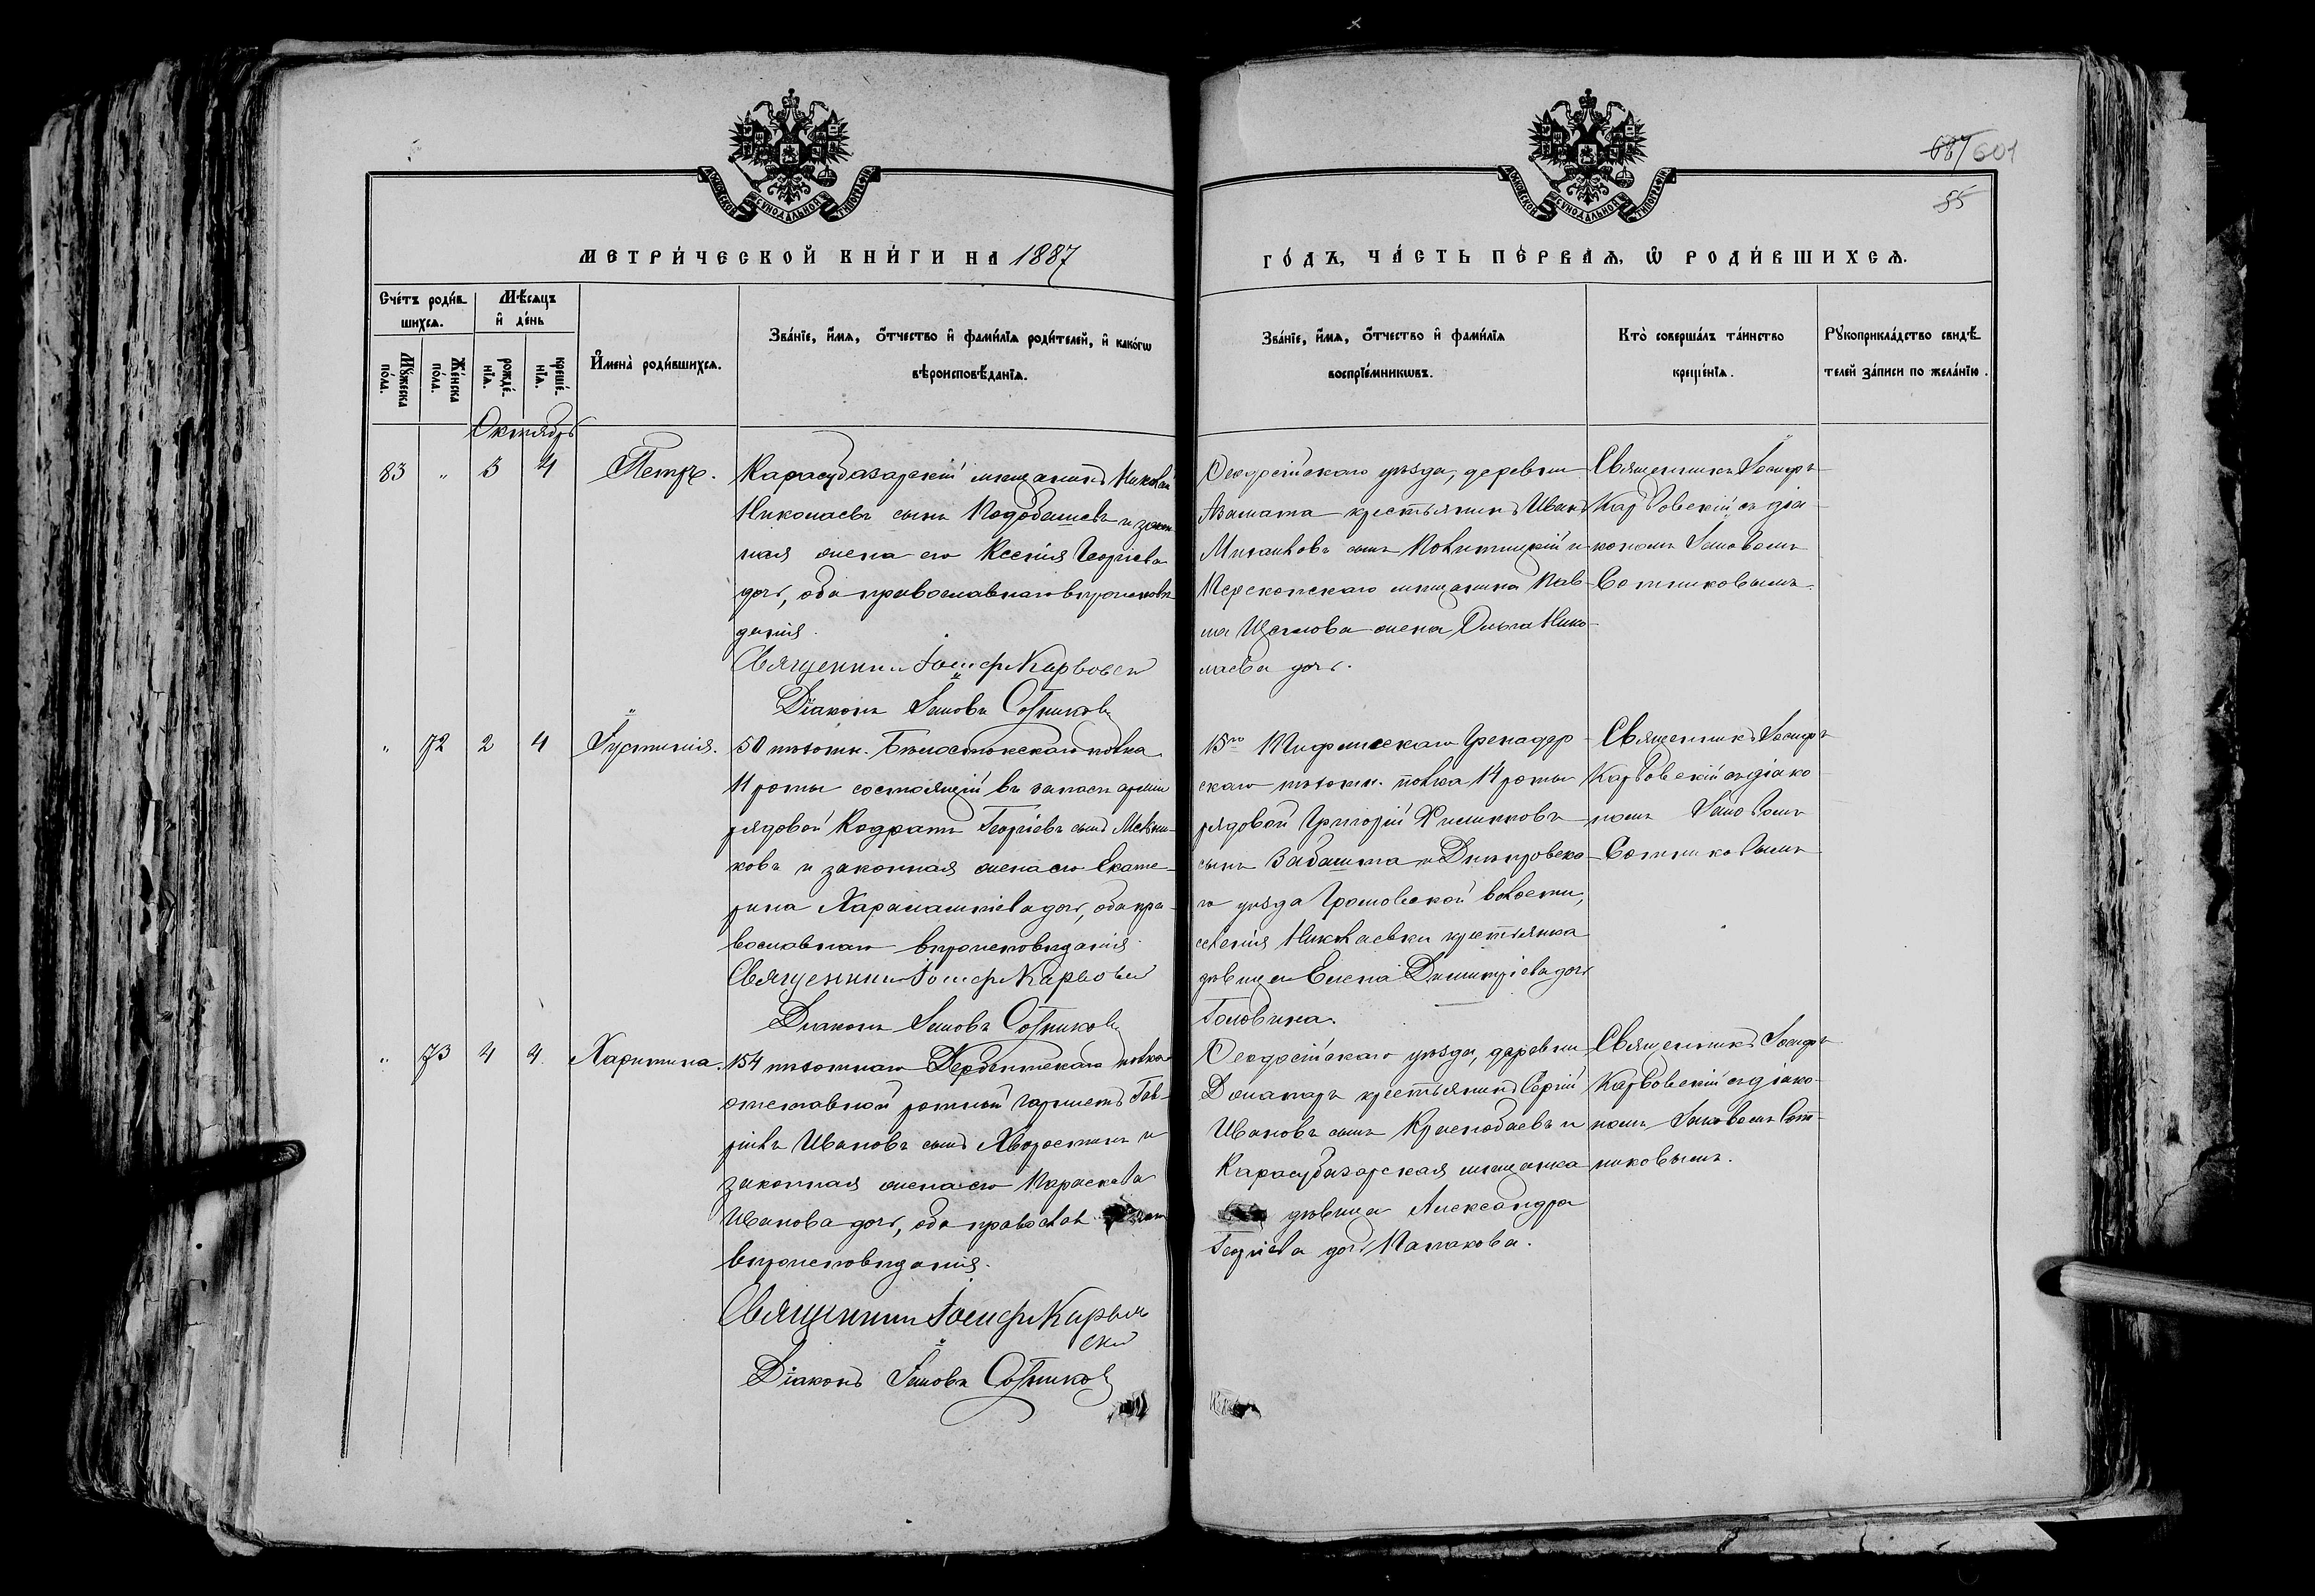 687 601
55
МОСКОВСКОЙ СѴНОДАЛЬНОЙ ТИПОГРАФІИ
МОСКОВСКОЙ СѴНОДАЛЬНОЙ ТИПОГРАФІИ
МЕТРИ́ЧЕСКОЙ КНИ́ГИ НА 1887
ГО́ДЪ, ЧА́СТЬ ПЕ́РВАѦ, Ѿ РОДИ́ВШИХСѦ.
Сче́тъ роди́в-
шихсѧ.
Мꙋ́жеска по́ла.
Же́нска по́ла.
Мѣ́сѧцъ
и҆ де́нь
рожде́-
нїѧ.
креще́-
нїѧ.
И҆мена̀ роди́вшихсѧ.
Зва́нїе, и҆́мѧ, о҆́тчество и҆ фами́лїѧ роди́телей, и҆ како́гѡ
вѣроисповѣ́данїѧ.
Зва́нїе, и҆́мѧ, о҆́тчество и҆ фами́лїѧ
воспрїе́мникѡвъ.
Кто̀ соверша́лъ та́инство
креще́нїѧ.
Рꙋкоприкла́дство свидѣ́-
телей за́писи по жела́нїю.
Октябрь
83 " 3 4 Петръ.
Карасубазарскій мѣщанинъ Николай
Николаевъ сынъ и закон
ная жена его Ксенія Георгіева
дочь, оба православнаго вѣроисповѣ
данія.
Священникъ Іосифъ Карвовск
Діаконъ Іаковъ Сотников
Ѳеодосійскаго уѣзда, деревни
Азамата крестьянинъ Иванъ
Михайловъ сынъ и
Перекопскаго мѣщанина Пав-
ла Щеглова жена Ольга Нико-
лаева дочь.
Священникъ Іосифъ
Карвовскій съ діа-
кономъ Іаковомъ
Сотниковымъ.
" 72 2 4 Іустинія.
50 пѣхотн. Бѣлостокскаго полка
11 роты состоящій въ запасѣ арміи
рядовой Кодратъ Георгіевъ сынъ
ковъ и законная жена его Екате-
рина Харалампіева дочь, оба пра-
вославнаго вѣроисповѣданія.
Священникъ Іосифъ Карвовск
Діаконъ Іаковъ Сотников
15го Тифлисскаго Гренадер-
скаго пѣхотн. полка 14 роты
рядовой Григорій Филипповъ
сынъ Забашта и Днѣпровска-
го уѣзда Громовской волости,
селенія Николаевки крестьянка
дѣвица Елена Димитріева дочь
Головина.
Священникъ Іосифъ
Карвовскій съ діако-
номъ Іаковомъ
Сотниковымъ
" 73 4 4. Харитина.
154 пѣхотнаго Дербентскаго полка
отставной ротный Гав-
рилъ Ивановъ сынъ Хворостинъ и
законная жена его Параскева
Иванова дочь, оба православ
вѣроисповѣданія.
Священникъ Іосифъ Карвов
скій
Діаконъ Іаковъ Сотников
Ѳеодосійскаго уѣзда, деревни
крестьянинъ Сергій
Ивановъ сынъ и
Карасубазарская мѣщанка
дѣвица Александра
Георгіева дочь
Священникъ Іосифъ
Карвовскій съ діако-
номъ Іаковомъ Сот-
никовымъ.